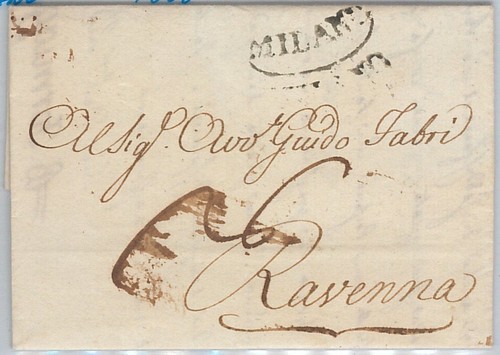 MILANO
Al Sig.r Avv.t Guido Fabri
Ravenna